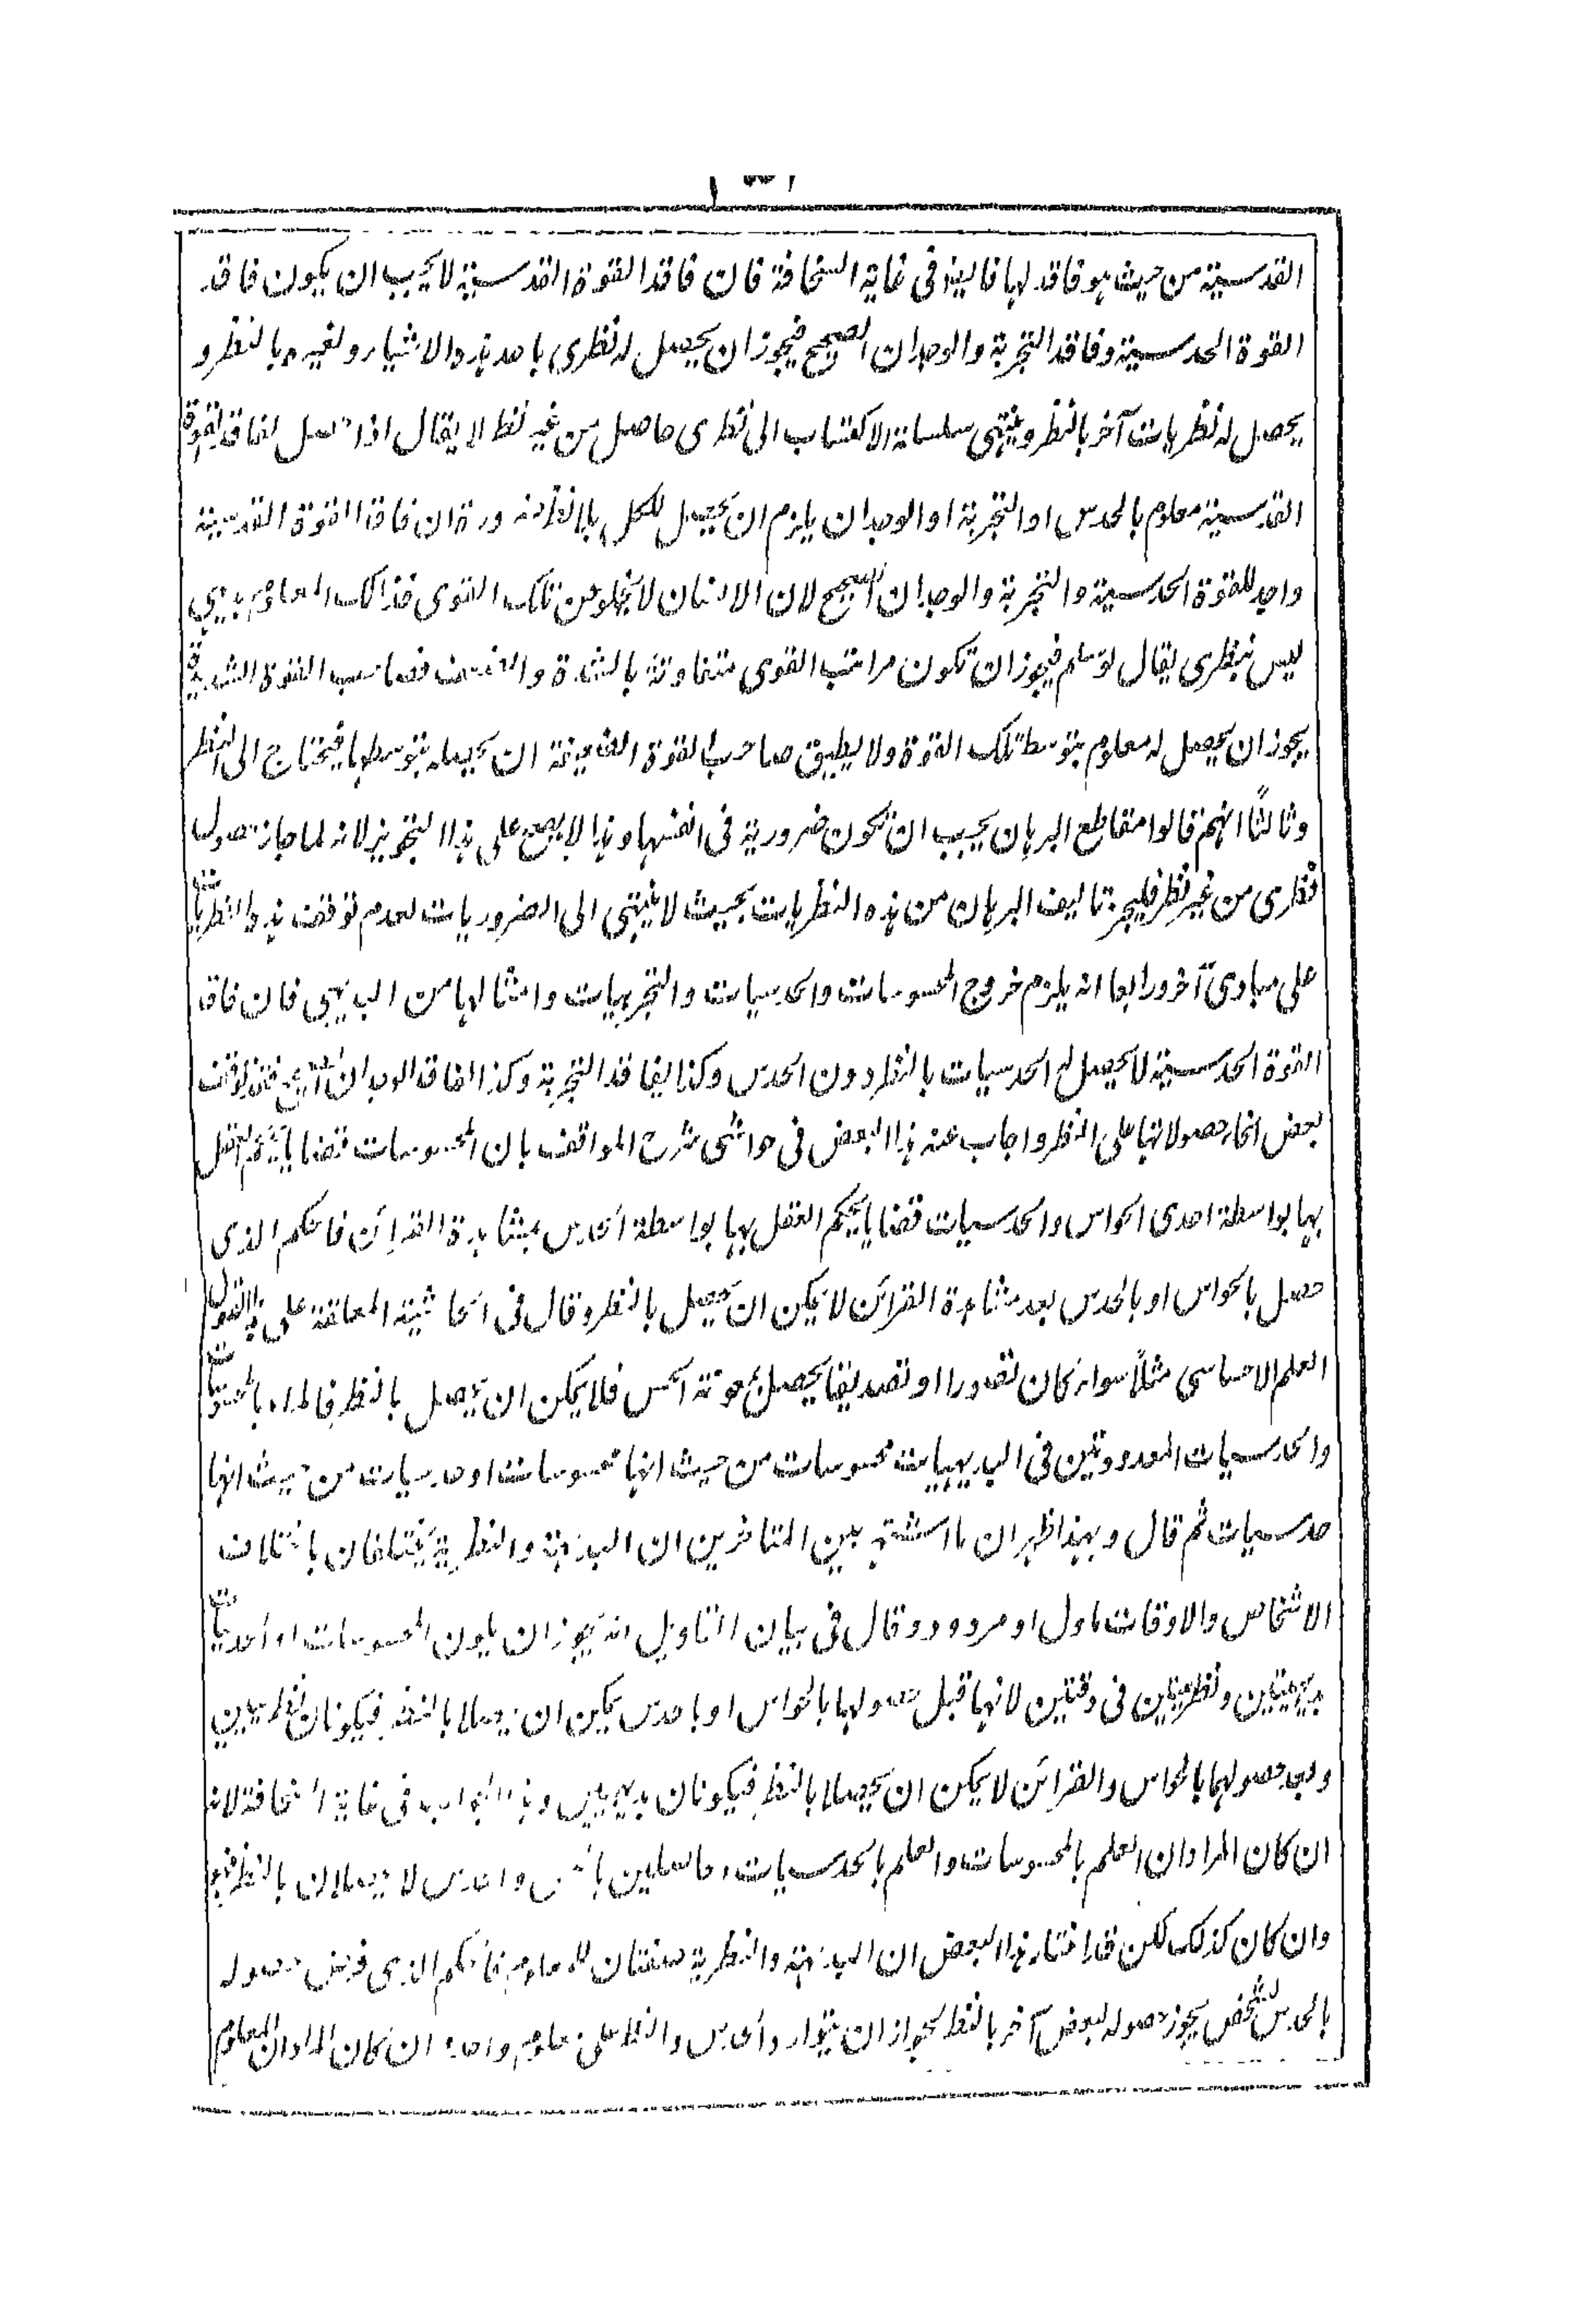 القدسية من حيث هو فاقد لها فاليهذا فى غاية السخافة فان فاقد القوة القدسية لا يجب ان يكون فاقد
القوة الحدسية وفاقد التجربة والوجدان الصحيح فيجوز ان يحصل له نظرى باحد هذه الاشياء ولغيره بالنظر و
يحصل له نظريات آخر بالنظر وينتهى سلسلة الاكتساب الى نظرى حاصل من غير نظر لا يقال اذا حصل لفاقد القوة
القدسية معلوم بالحدس او التجربة او الوجدان يلزم ان يحصل للكل بلا نظر ضرورة ان فاقد القوة القدسية
واجد للقوة الحدسية والتجربة والوجدان الصحيح لان الانسان لا يخلو عن تلك القوى فذلك المعلوم بديهى
ليس بنظرى يقال لو سلم فيجوز ان تكون مراتب القوى متفاوتة بالشدة والضعف فصاحب القوة الشديدة
يجوز ان يحصل له معلوم بتوسط تلك القوة ولا يطيق صاحب القوة الضعيفة ان يحصله بتوسطها فيحتاج الى النظر
وثالثًا انهم قالوا مقاطع البرهان يجب ان تكون ضرورية فى انفسها وهذا لا يصح على هذا التجويز لانه لما جاز حصول
نظرى من غير نظر فليجز تاليف البرهان من هذه النظريات بحيث لا ينتهى الى الضروريات لعدم توقف هذه النظريات
على مبادى آخر ورابعا انه يلزم خروج المحسوسات والحدسيات والتجربيات وامثالها من البديهى فان فاقد
القوة الحدسية لا يحصل له الحدسيات بالنظر دون الحدس وكذا لفاقد التجربة وكذا لفاقد الوجدان الصحيح فتوقف
بعض انحاء حصولاتها على النظر واجاب عنه هذا البعض فى حواشى شرح المواقف بان المحسوسات قضايا يحكم العقل
بها بواسطة احدى الحواس والحدسيات قضايا يحكم العقل بها بواسطة الحدس بمشاهدة القرائن فالحكم الذى
حصل بالحواس او بالحدس بعد مشاهدة القرائن لا يمكن ان يحصل بالنظر وقال فى الحاشية المعلقة على هذا القول
العلم الاحساسى مثلًا سواء كان تصورا او تصديقا يحصل بمعونة الحس فلا يمكن ان يحصل بالنظر فالمراد بالمحسوسات
والحدسيات المعدودتين فى البديهيات محسوسات من حيث انها محسوسات او حدسيات من حيث انها
حدسيات ثم قال وبهذا ظهر ان ما اشتهر بين المتاخرين ان البداهة والنظرية يختلفان باختلاف
الاشخاص والاوقات ماول او مردود وقال فى بيان التاويل انه يجوز ان يكون المحسوسات او الحدسيات
بديهيتين ونظريتين فى وقتين لانها قبل حصولها بالحواس او بالحدس يمكن ان يحصلا بالنظر فيكونان نظريين
وبعد حصولهما بالحواس والقرائن لا يمكن ان يحصلا بالنظر فيكونان بديهيين وهذا الجواب فى غاية السخافة لانه
ان كان المراد ان العلم بالمحسوسات والعلم بالحدسيات حاصلين بالحس والحدس لا يحصلان بالنظر فهو
وان كان كذلك لكن قد اختار هذا البعض ان البداهة والنظرية صفتان للمعلوم فالحكم الذى فرض حصوله
بالحدس لشخص يجوز حصوله لبعض آخر بالنظر لجواز ان يتوارد الحدس والنظر على معلوم واحد وان كان المراد ان المعلوم